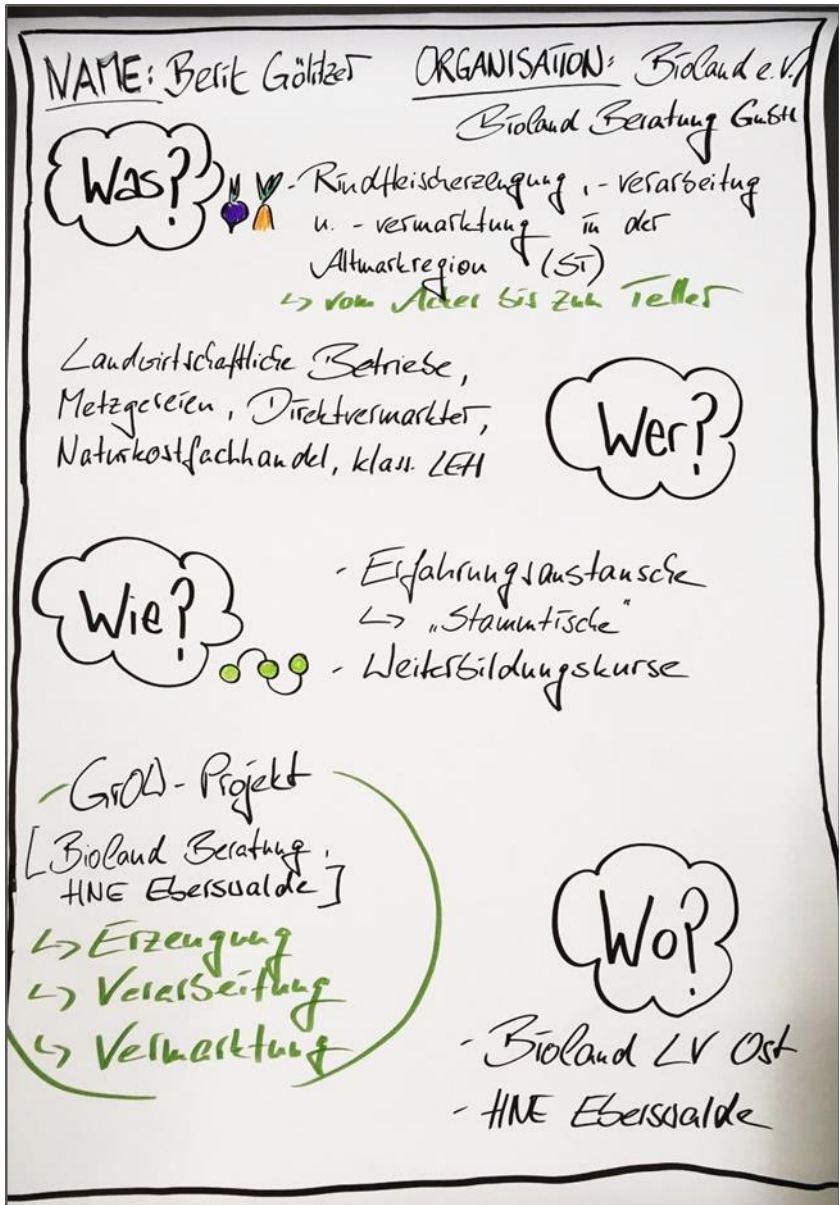 NAME: Berit Gölitzer ORGANISATION: Bioland e.V./
Bioland Beratung GmbH
Was?
- Rindfleischerzeugung, -verarbeitug
u. -vermarktung in der
Altmarkregion (ST)
↳ vom Acker bis zum Teller
Landwirtschaftliche Betriebe,
Metzgereien, Direktvermarkter,
Naturkostfachhandel, klass. LEH
Wer?
Wie?
- Erfahrungsaustausche
↳ „Stammtische"
- Weiterbildungskurse
- GrOW-Projekt
[Bioland Beratung,
HNE Eberswalde]
↳ Erzeugung
↳ Verarbeitung
↳ Vermarktung
Wo?
- Bioland LV Ost
- HNE Eberswalde